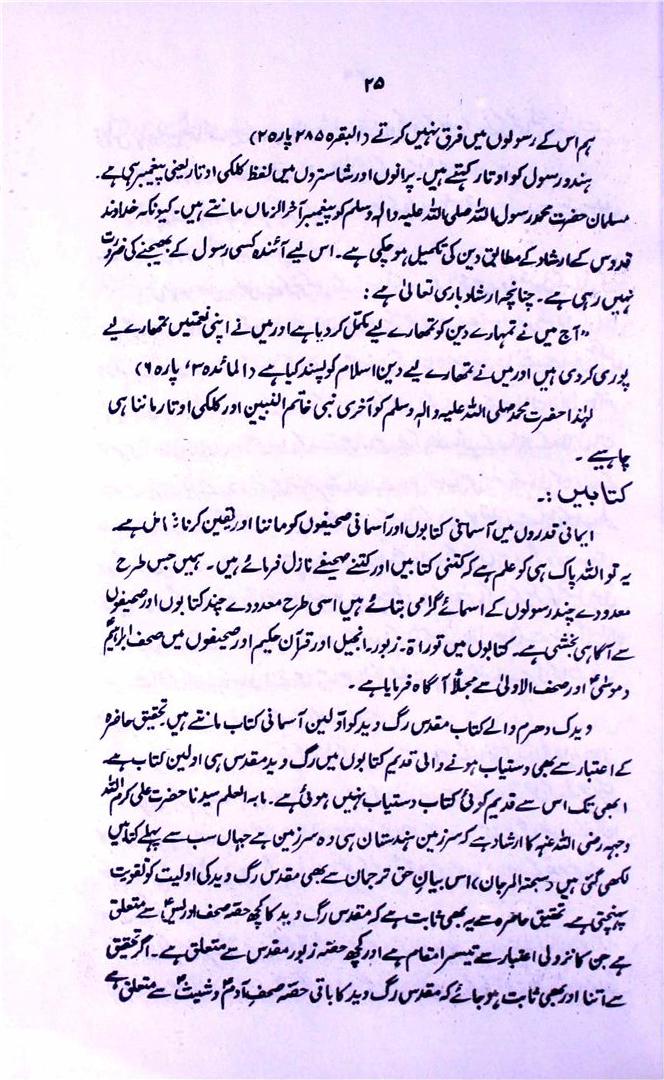 ۲۵
ہم اس کے رسولوں میں فرق نہیں کرتے (البقرہ ۲۸۵ پارہ ۲)
ہندو رسول کو اوتار کہتے ہیں۔ پرانوں اور شاستروں میں لفظ کلکی اوتار یعنی پیغمبر ہی ہے۔
مسلمان حضرت محمد رسول اللہ صلی اللہ علیہ والہ وسلم کو پیغمبر آخر الزماں مانتے ہیں۔ کیونکہ خداوند
قدوس کے ارشاد کے مطابق دین کی تکمیل ہو چکی ہے۔ اس لیے آئندہ کسی رسول کے بھیجنے کی ضرورت
نہیں رہی ہے۔ چنانچہ ارشاد باری تعالیٰ ہے :
"آج میں نے تمہارے دین کو تمھارے لیے مکمل کر دیا ہے اور میں نے اپنی نعمتیں تمھارے لیے
پوری کر دی ہیں اور میں نے تمھارے لیے دین اسلام کو پسند کیا ہے (المائدہ ۳، پارہ ۶)
لہٰذا حضرت محمد صلی اللہ علیہ والہ وسلم کو آخری نبی خاتم النبین اور کلکی اوتار ماننا ہی
چاہیے۔
کتابیں :۔
ایمانی قدروں میں آسمانی کتابوں اور آسمانی صحیفوں کو ماننا اور یقین کرنا شامل ہے
یہ تو اللہ پاک ہی کو علم ہے کہ کتنی کتابیں اور کتنے صحیفے نازل فرمائے ہیں۔ ہمیں جس طرح
معدودے چند رسولوں کے اسمائے گرامی بتائے ہیں اسی طرح معدودے چند کتابوں اور صحیفوں
سے آگاہی بخشی ہے۔ کتابوں میں توراۃ۔ زبور۔ انجیل اور قرآن حکیم اور صحیفوں میں صحف ابراہیمؑ
و موسیٰؑ اور صحف الاولیٰ سے مجملاً آگاہ فرمایا ہے۔
ویدک دھرم والے کتاب مقدس رگ وید کو اولین آسمانی کتاب مانتے ہیں تحقیق حاضرہ
کے اعتبار سے بھی دستیاب ہونے والی قدیم کتابوں میں رگ وید مقدس ہی اولین کتاب ہے
ابھی تک اس سے قدیم کوئی کتاب دستیاب نہیں ہوئی ہے۔ باب العلم سیدنا حضرت علی کرم اللہ
وجہہ رضی اللہ عنہ کا ارشاد ہے کہ سرزمین ہندستان ہی وہ سرزمین ہے جہاں سب سے پہلے کتابیں
لکھی گئی ہیں (سبحۃ المرجان) اس بیان حق ترجمان سے بھی مقدس رگ وید کی اولیت کو تقویت
پہنچتی ہے۔ تحقیق حاضرہ سے یہ بھی ثابت ہے کہ مقدس رگ وید کا کچھ حصہ صحف ادریسؑ سے متعلق
ہے جن کا نزولی اعتبار سے تیسرا مقام ہے اور کچھ حصہ زبور مقدس سے متعلق ہے۔ اگر تحقیق
سے اتنا اور بھی ثابت ہو جائے کہ مقدس رگ وید کا باقی حصہ صحف آدمؑ و شیثؑ سے متعلق ہے